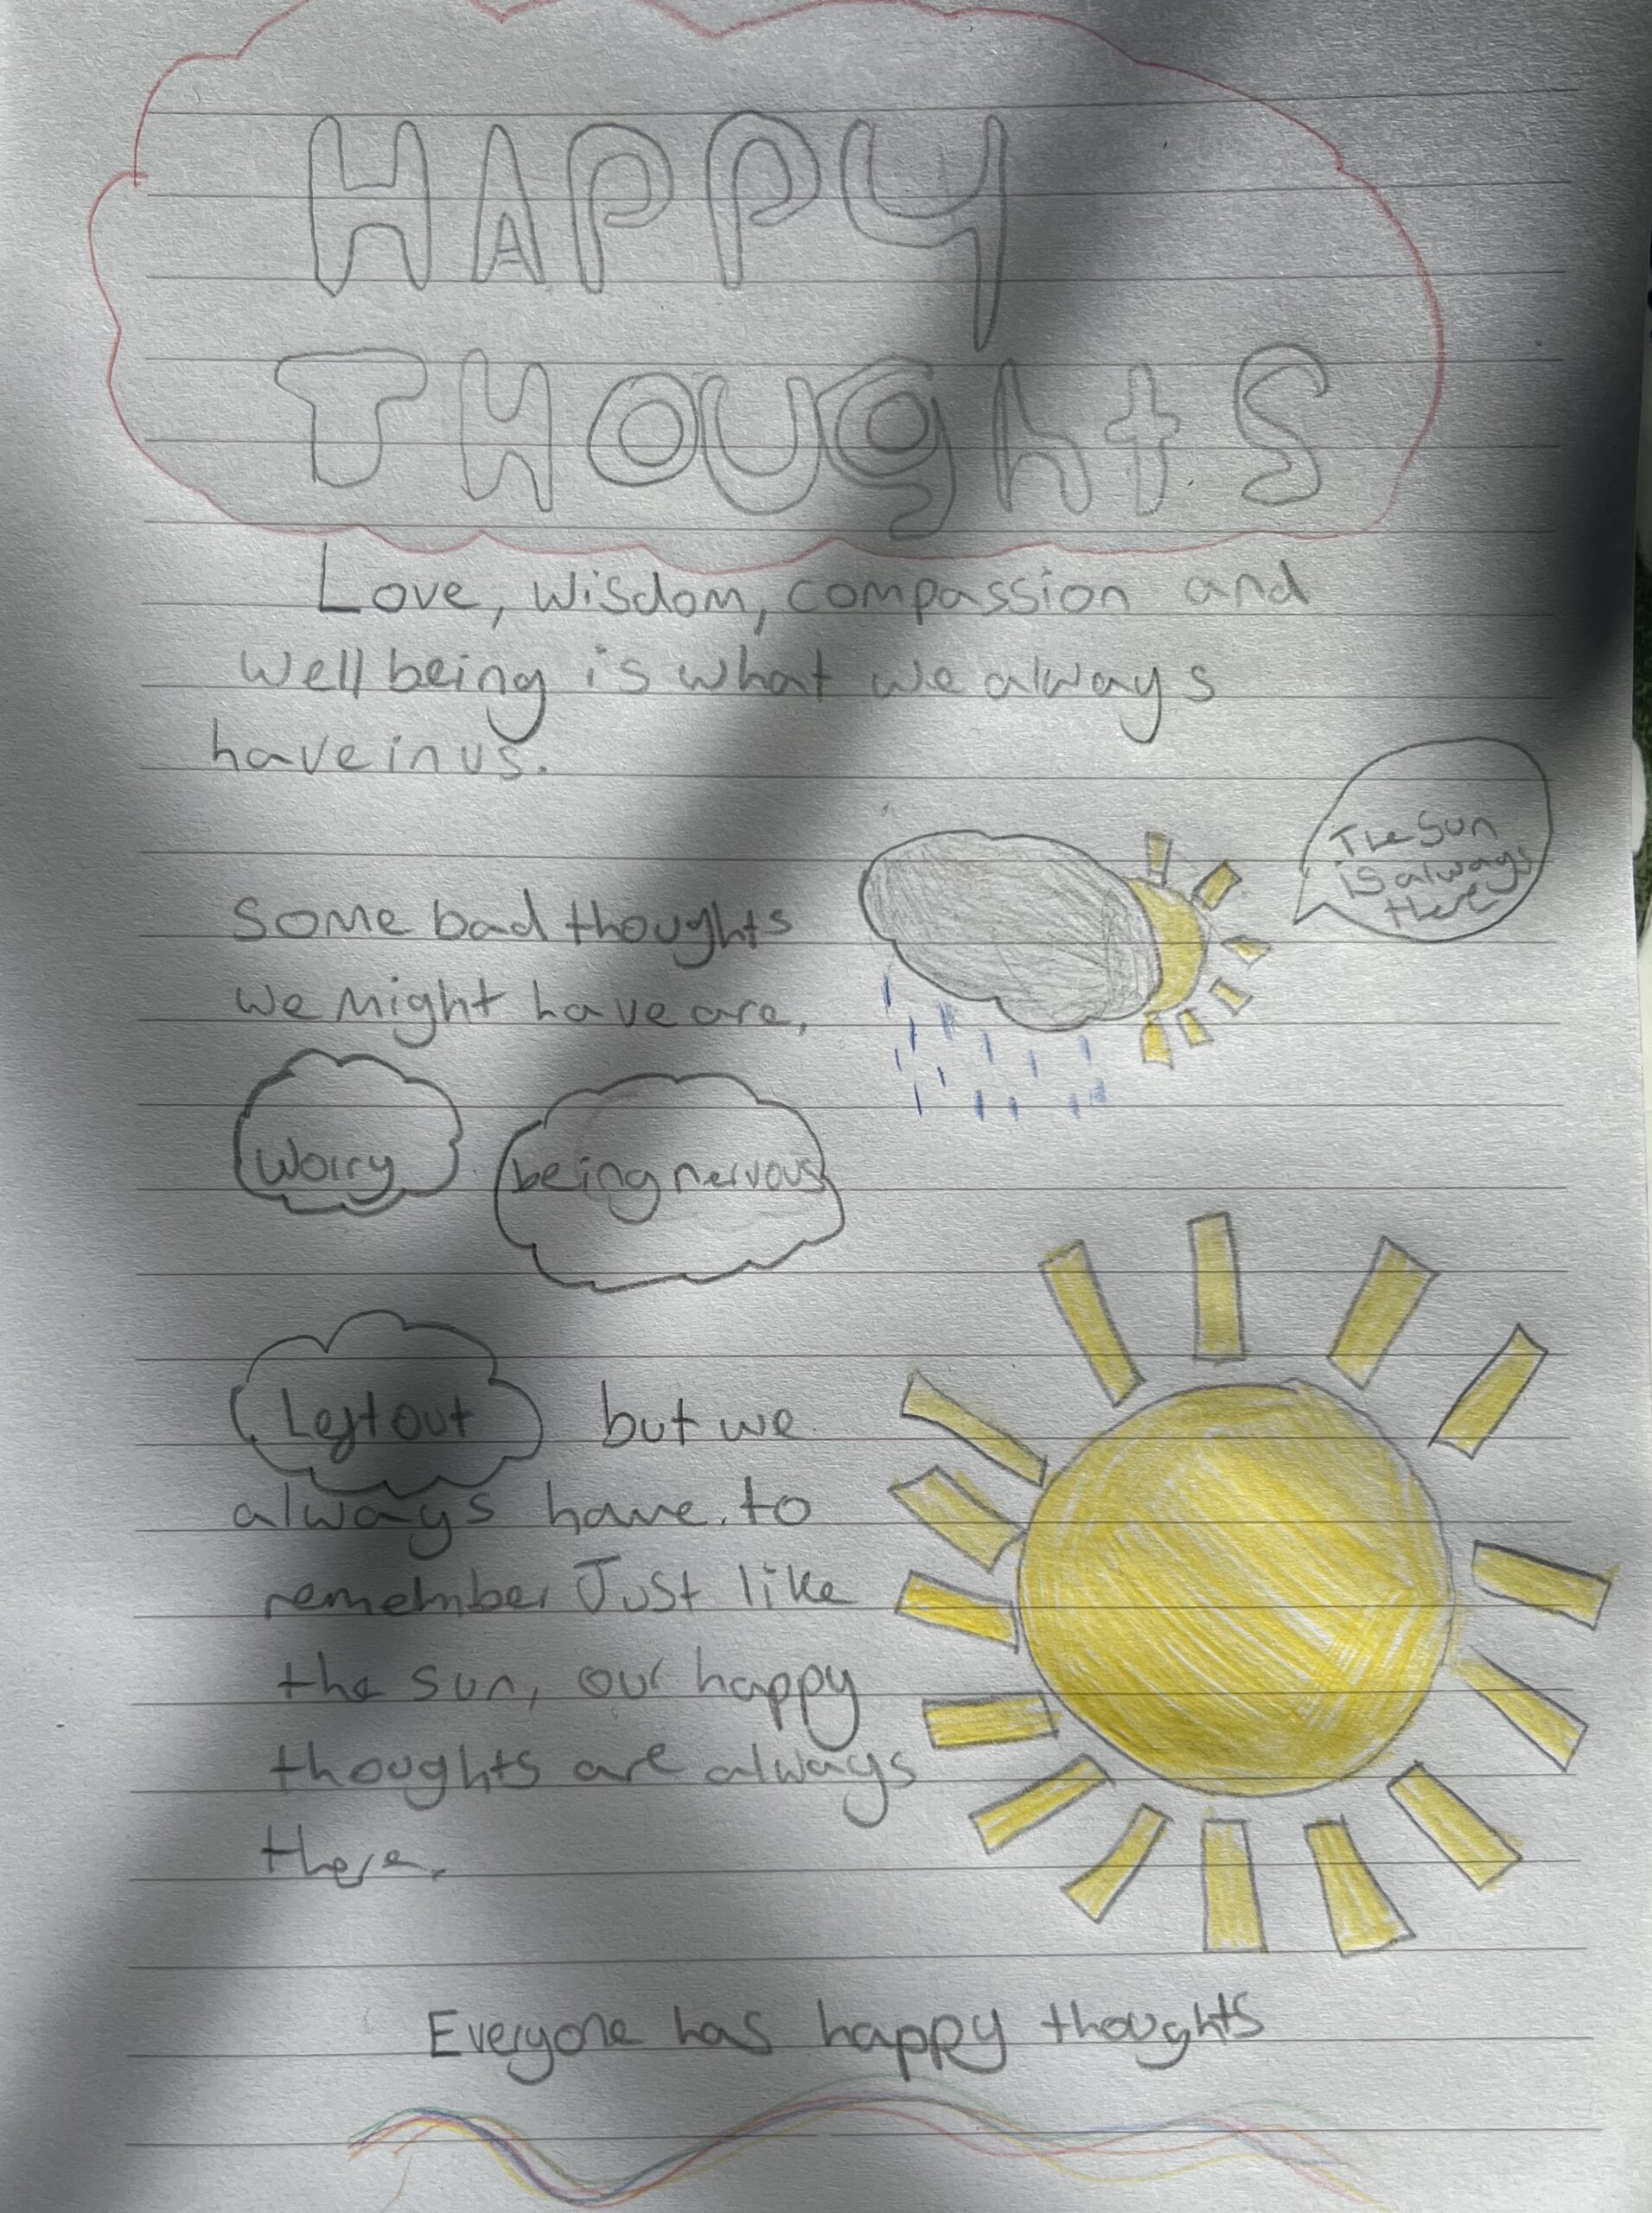 HAPPY
THOUghtS
Love, wisdom, compassion and
well being is what we always
have in us.
The Sun
is always
there
Some bad thoughts
we might have are,
Worry
being nervous
Left out
but we
always have to
remember Just like
the sun, our happy
thoughts are always
there.
Everyone has happy thoughts